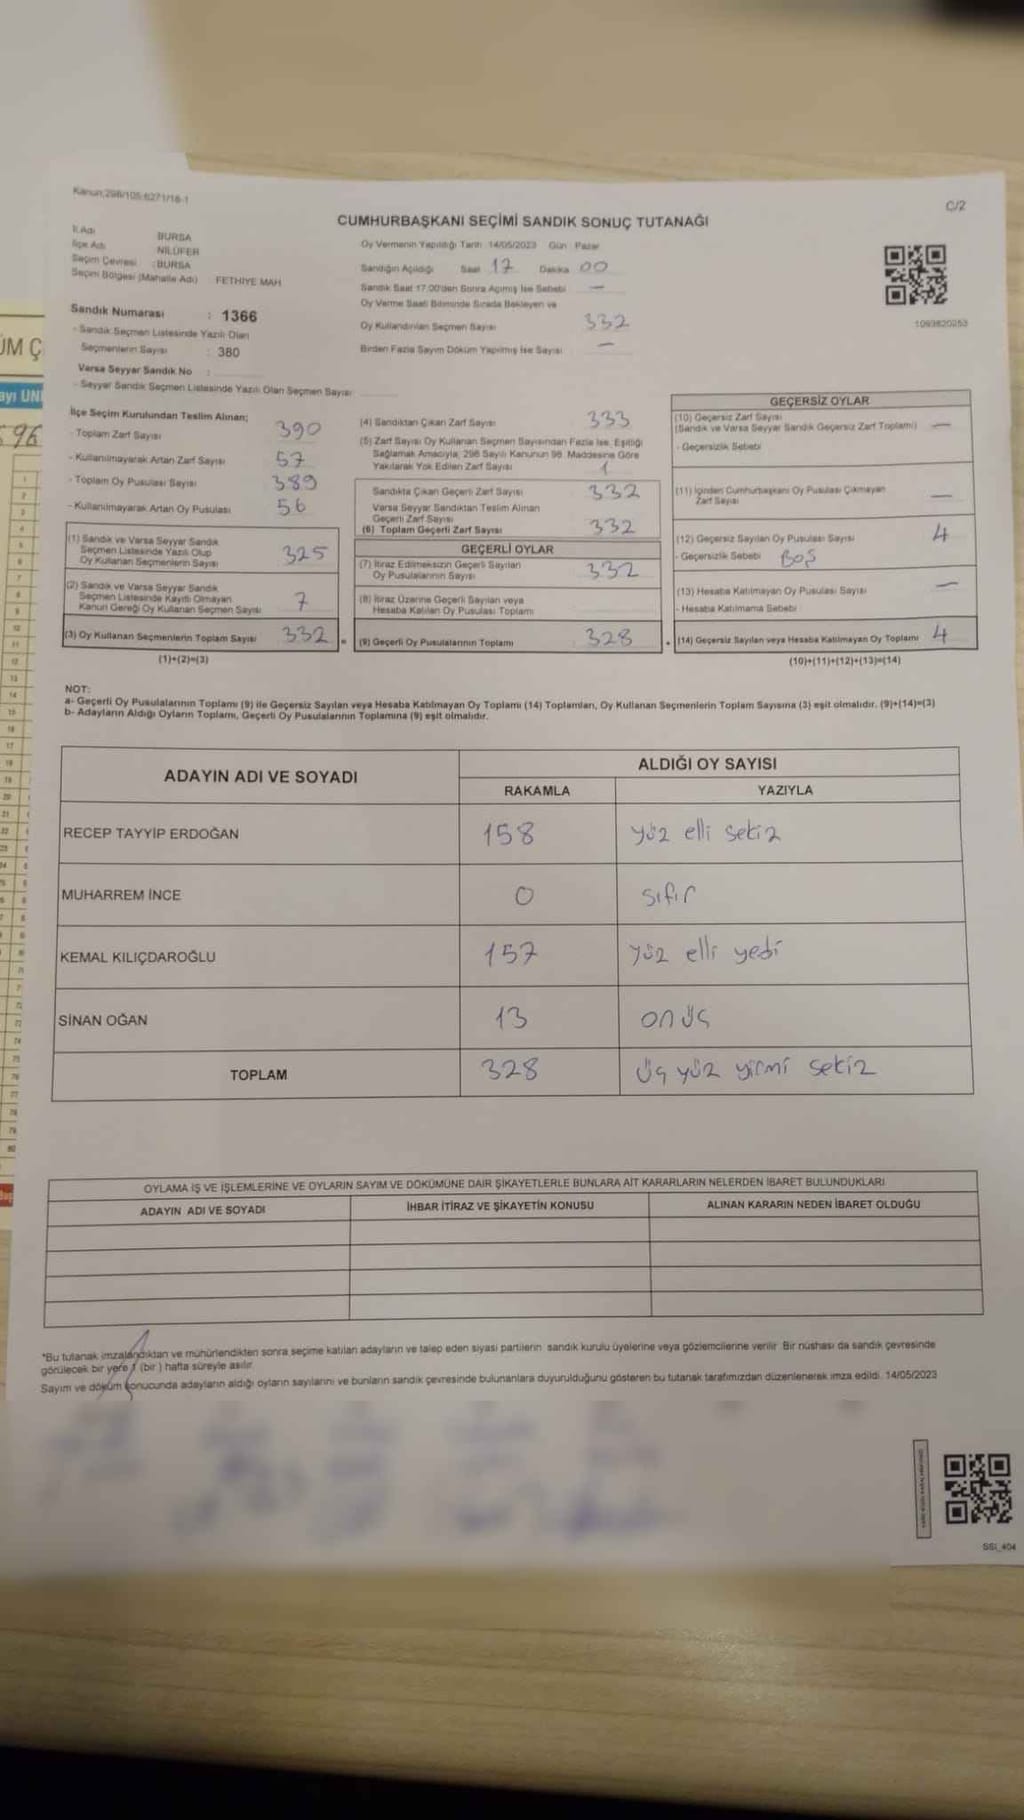 Kanun:298/105;6271/18-1
C/2
CUMHURBAŞKANI SEÇİMİ SANDIK SONUÇ TUTANAĞI
İl Adı BURSA
İlçe Adı NİLÜFER
Seçim Çevresi : BURSA
Seçim Bölgesi (Mahalle Adı) FETHİYE MAH
Sandık Numarası : 1366
- Sandık Seçmen Listesinde Yazılı Olan
Seçmenlerin Sayısı : 380
Varsa Seyyar Sandık No :
- Seyyar Sandık Seçmen Listesinde Yazılı Olan Seçmen Sayısı
Oy Vermenin Yapıldığı Tarih 14/05/2023 Gün Pazar
Sandığın Açıldığı Saat 17 Dakika 00
Sandık Saat 17:00'den Sonra Açılmış İse Sebebi —
Oy Verme Saati Bitiminde Sırada Bekleyen ve
Oy Kullandırılan Seçmen Sayısı 332
Birden Fazla Sayım Döküm Yapılmış İse Sayısı —
1093820253
İlçe Seçim Kurulundan Teslim Alınan;
- Toplam Zarf Sayısı 390
- Kullanılmayarak Artan Zarf Sayısı 57
- Toplam Oy Pusulası Sayısı 389
- Kullanılmayarak Artan Oy Pusulası 56
(1) Sandık ve Varsa Seyyar Sandık
Seçmen Listesinde Yazılı Olup
Oy Kullanan Seçmenlerin Sayısı 325
(2) Sandık ve Varsa Seyyar Sandık
Seçmen Listesinde Kayıtlı Olmayan
Kanun Gereği Oy Kullanan Seçmen Sayısı 7
(3) Oy Kullanan Seçmenlerin Toplam Sayısı 332 =
(1)+(2)=(3)
(4) Sandıktan Çıkan Zarf Sayısı 333
(5) Zarf Sayısı Oy Kullanan Seçmen Sayısından Fazla İse, Eşitliği
Sağlamak Amacıyla, 298 Sayılı Kanunun 98. Maddesine Göre
Yakılarak Yok Edilen Zarf Sayısı 1
Sandıkta Çıkan Geçerli Zarf Sayısı 332
Varsa Seyyar Sandıktan Teslim Alınan
Geçerli Zarf Sayısı
(6) Toplam Geçerli Zarf Sayısı 332
GEÇERLİ OYLAR
(7) İtiraz Edilmeksizin Geçerli Sayılan
Oy Pusulalarının Sayısı 332
(8) İtiraz Üzerine Geçerli Sayılan veya
Hesaba Katılan Oy Pusulası Toplamı
(9) Geçerli Oy Pusulalarının Toplamı 328 +
GEÇERSİZ OYLAR
(10) Geçersiz Zarf Sayısı
(Sandık ve Varsa Seyyar Sandık Geçersiz Zarf Toplamı) —
- Geçersizlik Sebebi
(11) İçinden Cumhurbaşkanı Oy Pusulası Çıkmayan
Zarf Sayısı —
(12) Geçersiz Sayılan Oy Pusulası Sayısı 4
- Geçersizlik Sebebi BOŞ
(13) Hesaba Katılmayan Oy Pusulası Sayısı —
- Hesaba Katılmama Sebebi
(14) Geçersiz Sayılan veya Hesaba Katılmayan Oy Toplamı 4
(10)+(11)+(12)+(13)=(14)
NOT:
a- Geçerli Oy Pusulalarının Toplamı (9) ile Geçersiz Sayılan veya Hesaba Katılmayan Oy Toplamı (14) Toplamları, Oy Kullanan Seçmenlerin Toplam Sayısına (3) eşit olmalıdır. (9)+(14)=(3)
b- Adayların Aldığı Oyların Toplamı, Geçerli Oy Pusulalarının Toplamına (9) eşit olmalıdır.
ADAYIN ADI VE SOYADI ALDIĞI OY SAYISI
RAKAMLA YAZIYLA
RECEP TAYYİP ERDOĞAN 158 yüz elli sekiz
MUHARREM İNCE 0 sıfır
KEMAL KILIÇDAROĞLU 157 yüz elli yedi
SİNAN OĞAN 13 onüç
TOPLAM 328 üç yüz yirmi sekiz
OYLAMA İŞ VE İŞLEMLERİNE VE OYLARIN SAYIM VE DÖKÜMÜNE DAİR ŞİKAYETLERLE BUNLARA AİT KARARLARIN NELERDEN İBARET BULUNDUKLARI
ADAYIN ADI VE SOYADI İHBAR İTİRAZ VE ŞİKAYETİN KONUSU ALINAN KARARIN NEDEN İBARET OLDUĞU
*Bu tutanak imzalandıktan ve mühürlendikten sonra seçime katılan adayların ve talep eden siyasi partilerin sandık kurulu üyelerine veya gözlemcilerine verilir. Bir nüshası da sandık çevresinde
görülecek bir yere 1 (bir) hafta süreyle asılır.
Sayım ve döküm sonucunda adayların aldığı oyların sayılarını ve bunların sandık çevresinde bulunanlara duyurulduğunu gösteren bu tutanak tarafımızdan düzenlenerek imza edildi. 14/05/2023
SSİ_404